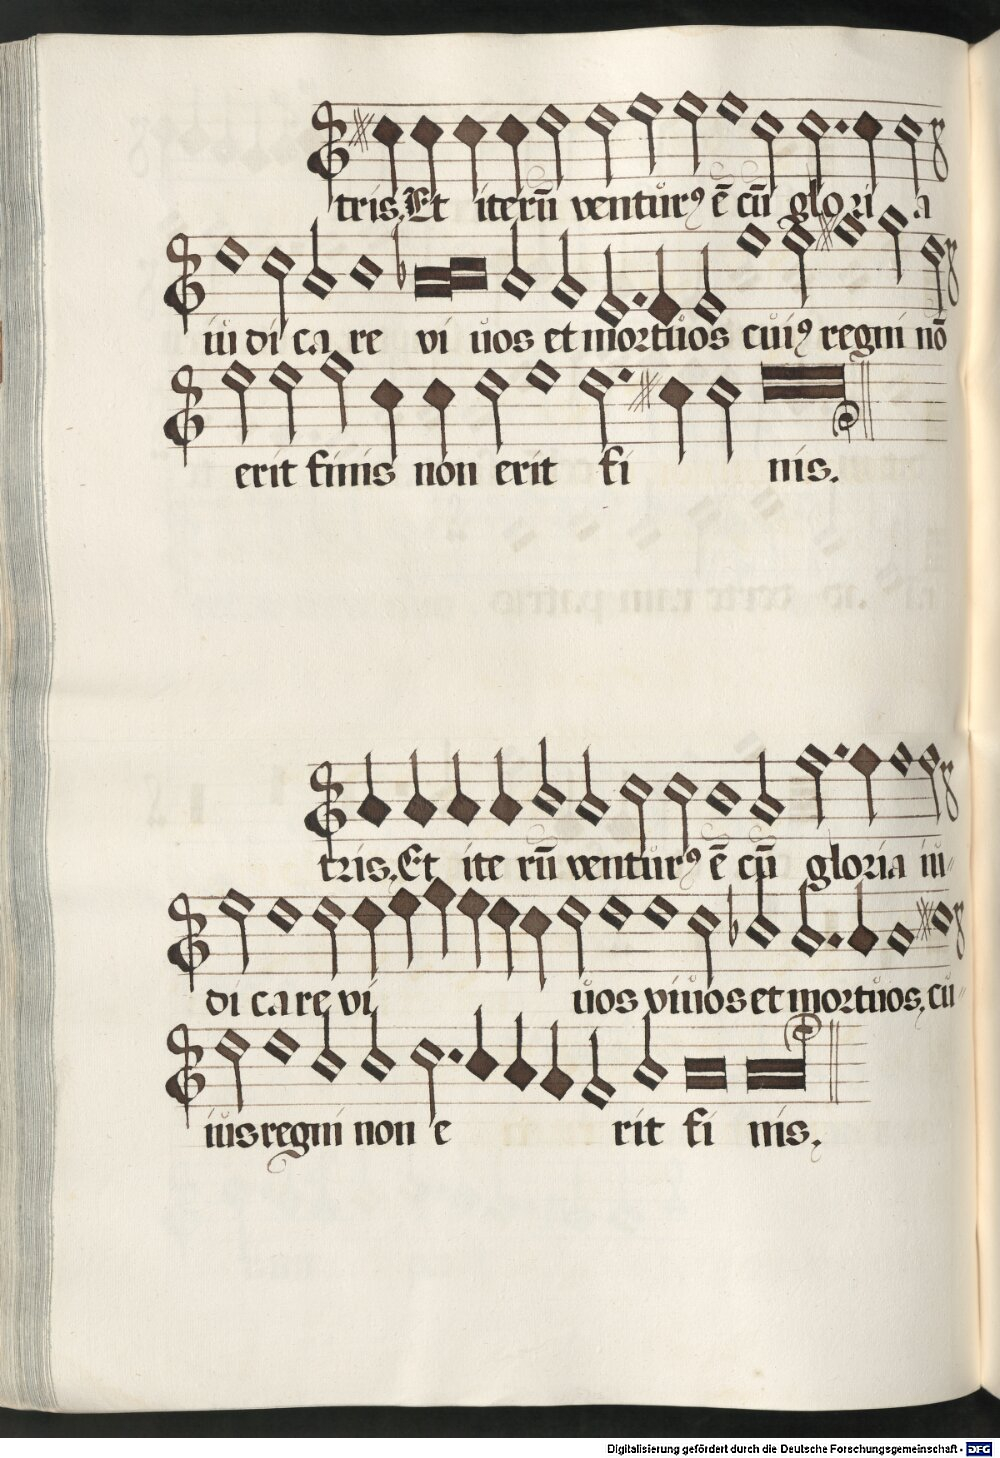 tris. Et iterū venturꝰ ē cū gloria
iudicare vi uos et mortuos cuiꝰ regni nō
erit finis non erit fi nis.
tris. Et ite rū venturꝰ ē cū gloria iu-
dicare vi uos viuos et mortuos, cu-
ius regni non e rit fi nis.
Digitalisierung gefördert durch die Deutsche Forschungsgemeinschaft - DFG